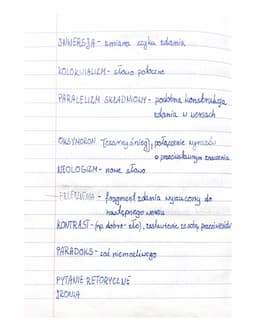 INWERSJA - zmiana szyku zdania
KOLOKWIALIZM - słowo potoczne
PARALELIZM SKŁADNIOWY - podobna konstrukcja
zdania w wersach
OKSYMORON (czarny śnieg), połączenie wyrazów
o przeciwstawnym znaczeniu
NEOLOGIZM - nowe słowo
PRZERZUTNIA - fragment zdania wyrzucony do
następnego wersu
KONTRAST - (np. dobro - zło), zestawienie cech przeciwieństw
PARADOKS - coś niemożliwego
PYTANIE RETORYCZNE
IRONIA